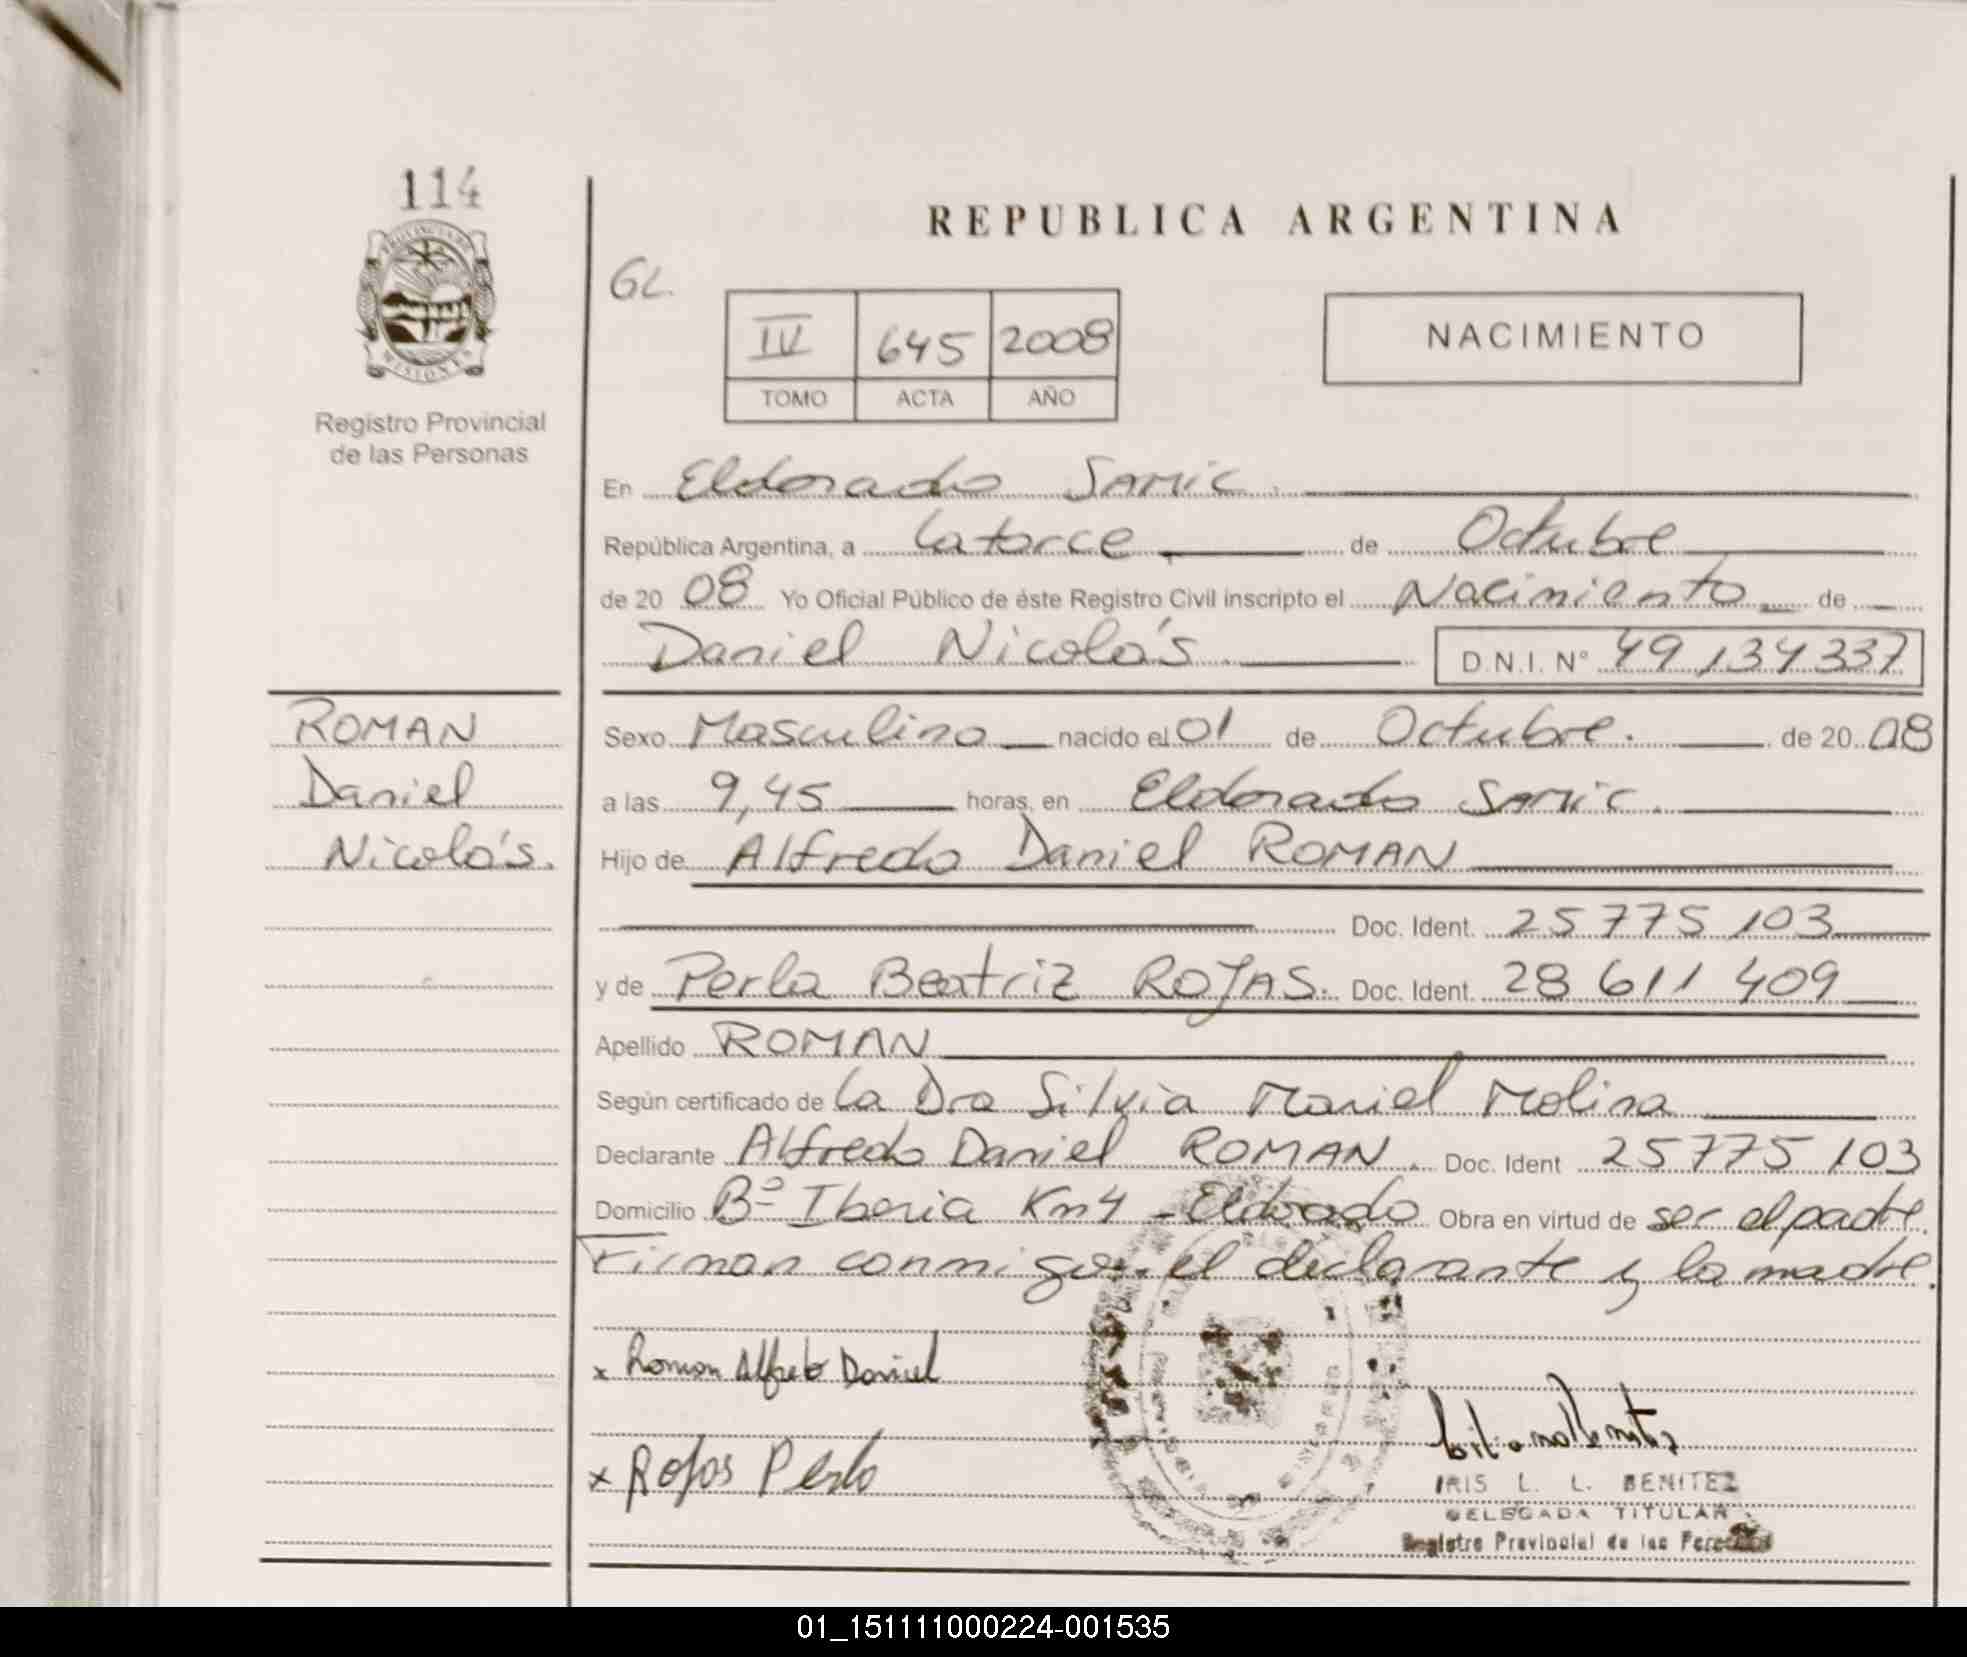 114
PROVINCIA DE
MISIONES
Registro Provincial
de las Personas
REPUBLICA ARGENTINA
GL.
IV 645 2008
TOMO ACTA AÑO
NACIMIENTO
En Eldorado SAMIC.
República Argentina, a Catorce de Octubre
de 2008 Yo Oficial Público de éste Registro Civil inscripto el Nacimiento de
Daniel Nicolás. D.N.I. Nº 49,134337
ROMAN
Daniel
Nicolás.
Sexo Masculino nacido el 01 de Octubre. de 2008
a las 9,45 horas, en Eldorado SAMIC.
Hijo de Alfredo Daniel ROMAN
Doc. Ident. 25 775 103
y de Perla Beatriz ROJAS. Doc. Ident. 28 611 409
Apellido ROMAN
Según certificado de La Dra Silvia Mariel Molina
Declarante Alfredo Daniel ROMAN. Doc. Ident 25775 103
Domicilio Bº Iberia Km4 - Eldorado Obra en virtud de ser el padre.
Firman conmigo el declarante y la madre.
x Roman Alfredo Daniel
x Rojas Perla
IRIS L. L. BENITEZ
DELEGADA TITULAR
Registro Provincial de las Personas
01_151111000224-001535